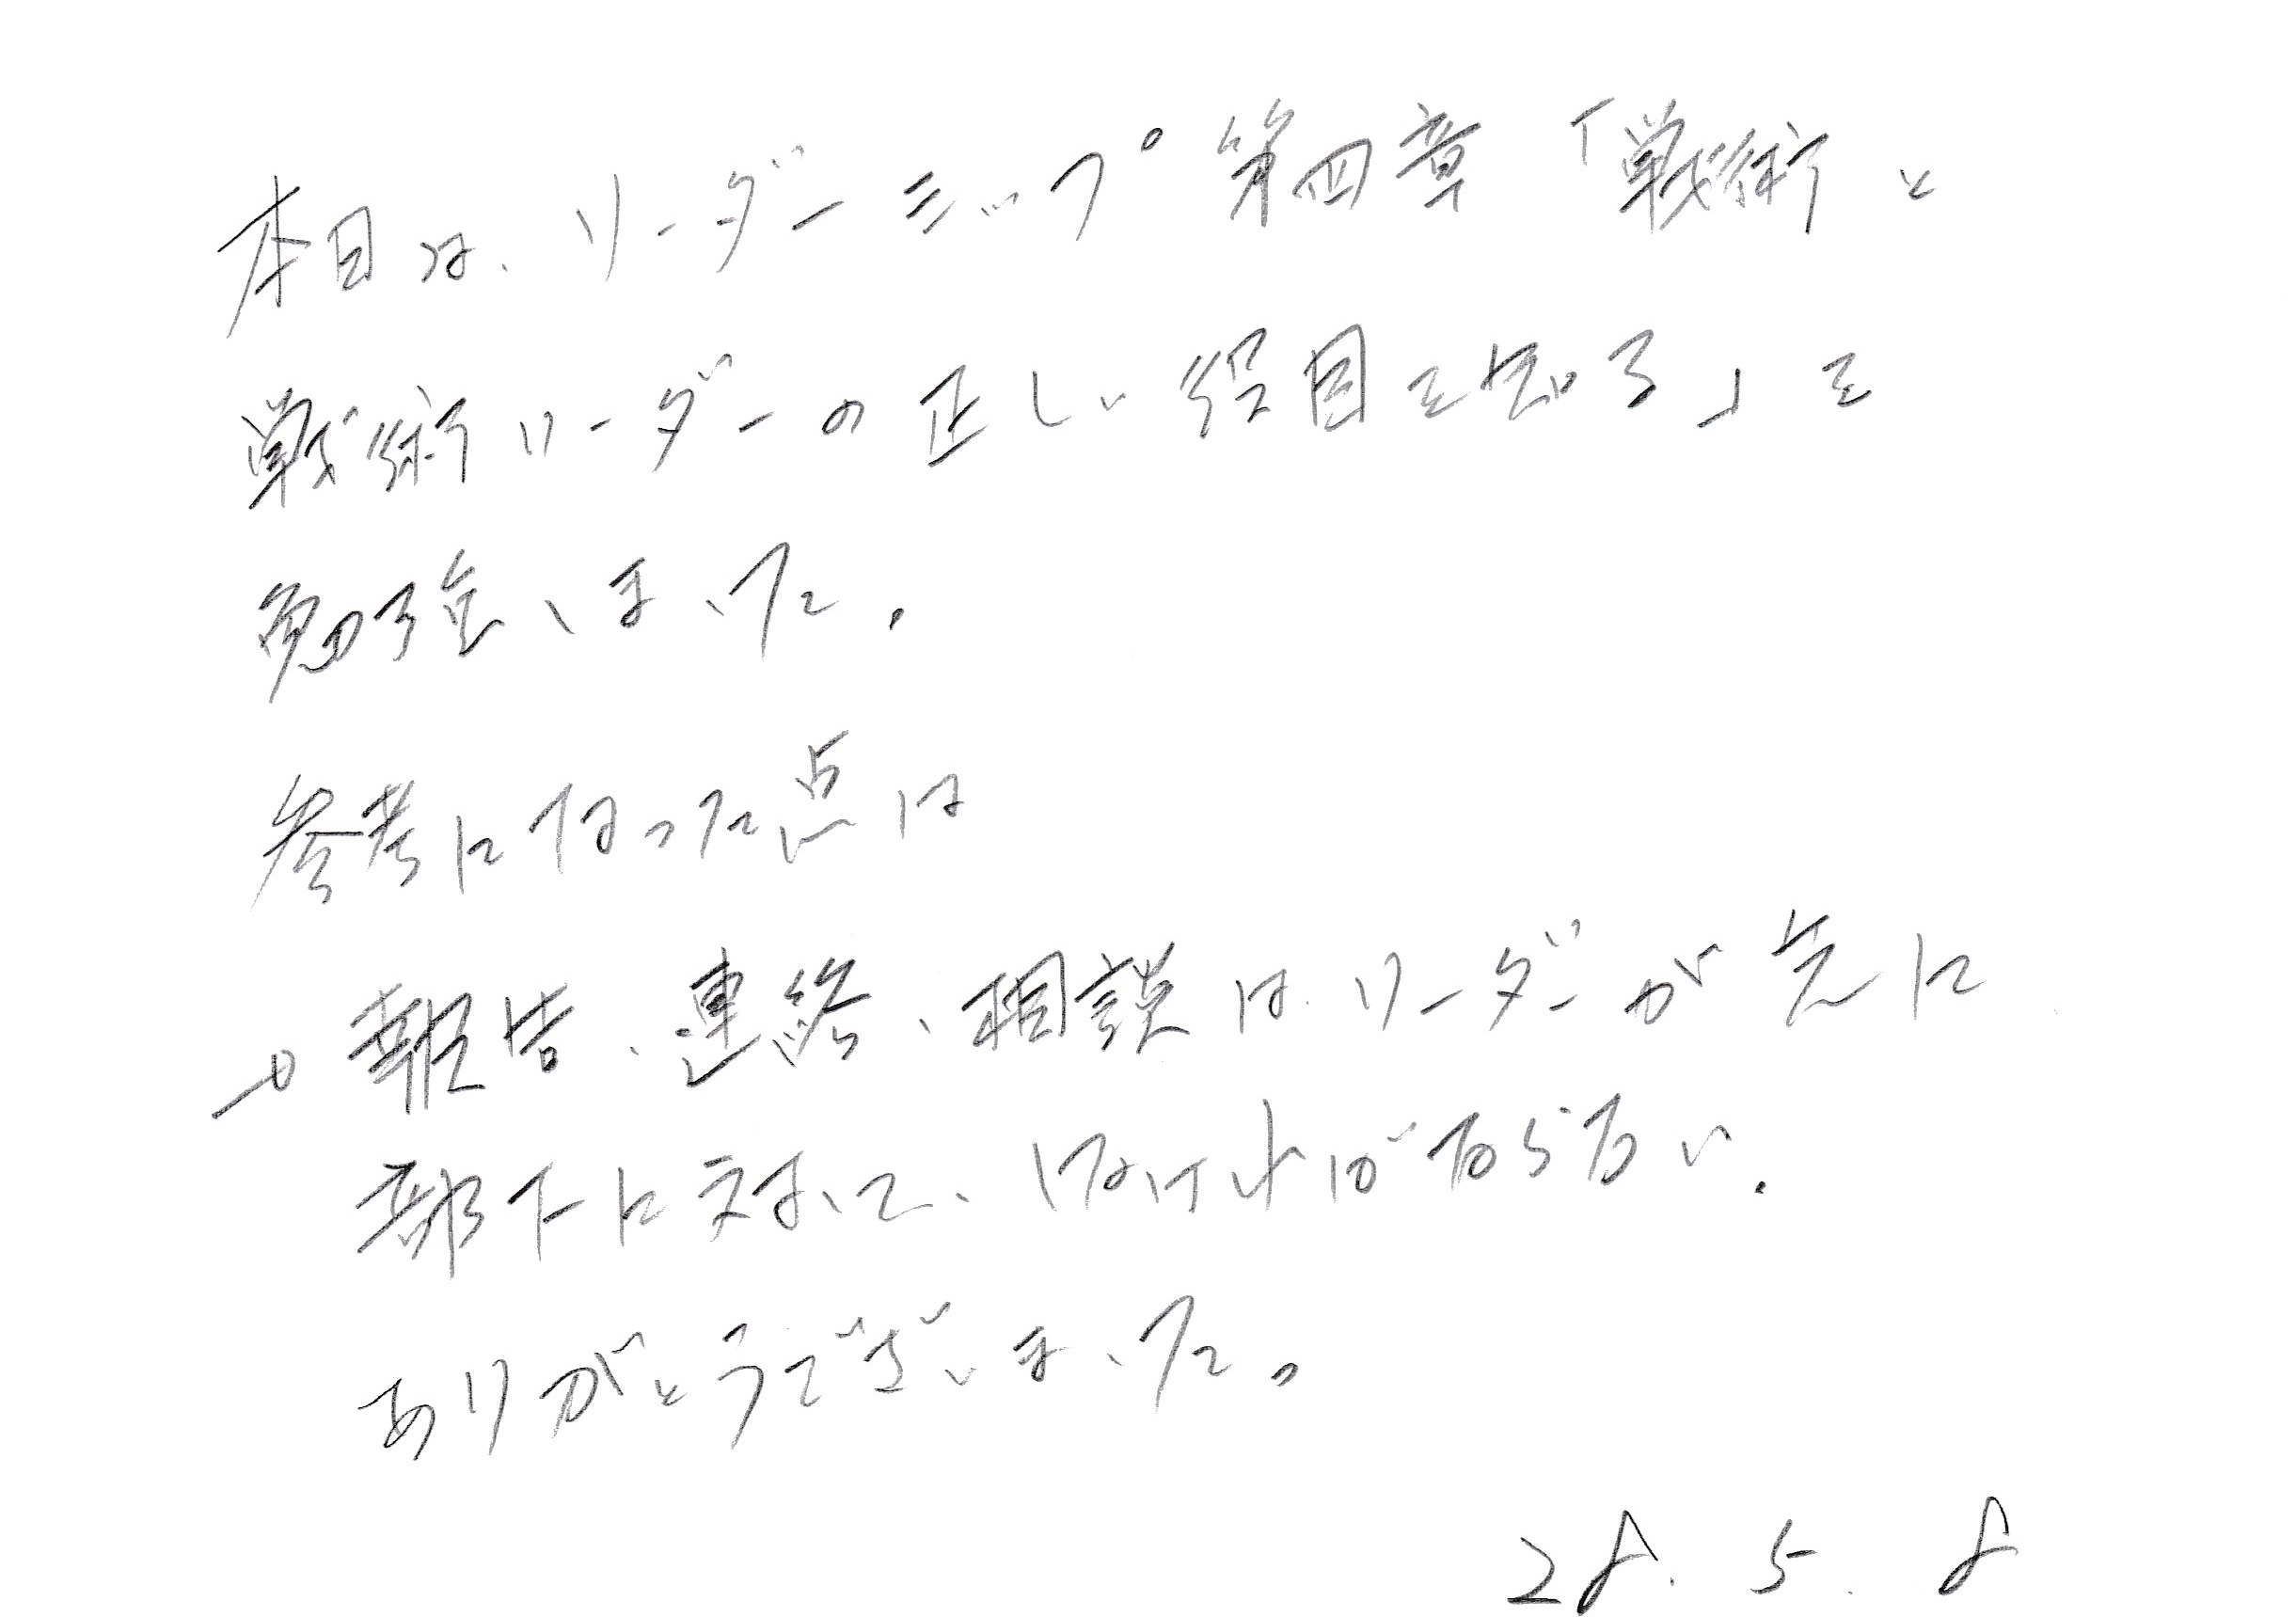 本日は、リーダーシップ 第四章「戦術と
戦術リーダーの正しい役目を知る」を
勉強しました。
参考になった点は
報告、連絡、相談はリーダーが先に
部下に対して、しなければならない。
ありがとうございました。
28. 5. 8